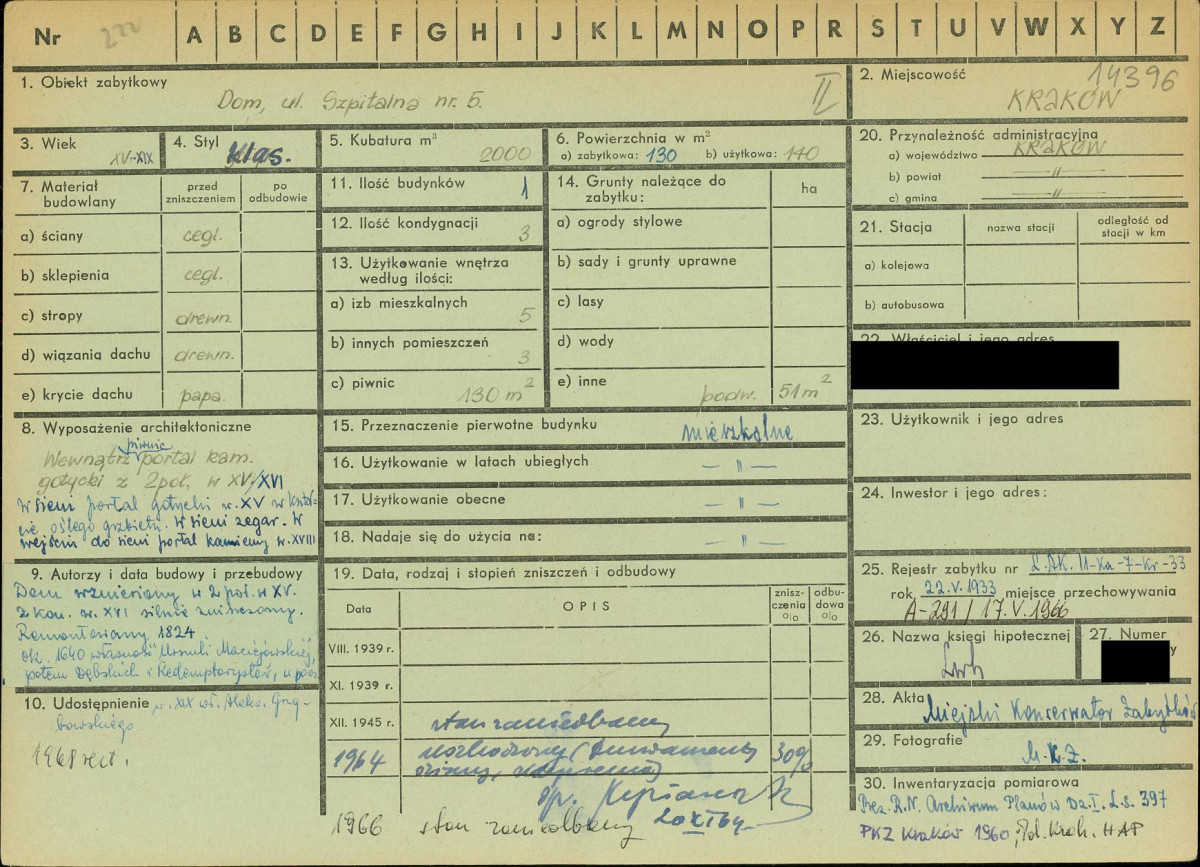 Nr 222 A B C D E F G H I J K L M N O P R S T U V W X Y Z
1. Obiekt zabytkowy
Dom, ul. Szpitalna nr. 5.
II
2. Miejscowość
14396
KRAKÓW
3. Wiek
XV-XIX
4. Styl
klas.
5. Kubatura m³
2000
6. Powierzchnia w m²
a) zabytkowa: 130 b) użytkowa: 140
20. Przynależność administracyjna
a) województwo KRAKÓW
b) powiat -"-
c) gmina -"-
7. Materiał budowlany
przed zniszczeniem
po odbudowie
a) ściany cegl.
b) sklepienia cegl.
c) stropy drewn.
d) wiązania dachu drewn.
e) krycie dachu papa.
11. Ilość budynków
1
12. Ilość kondygnacji
3
13. Użytkowanie wnętrza
według ilości:
a) izb mieszkalnych
5
b) innych pomieszczeń
3
c) piwnic
130 m²
14. Grunty należące do
zabytku:
ha
a) ogrody stylowe
b) sady i grunty uprawne
c) lasy
d) wody
e) inne podw. 51m²
21. Stacja
nazwa stacji
odległość od
stacji w km
a) kolejowa
b) autobusowa
22. Właściciel i jego adres
8. Wyposażenie architektoniczne
piwnic
Wewnątrz portal kam.
gotycki z 2poł. w XV/XVI
W sieni portal gotycki w. XV w
oślego grzbietu. W sieni zegar. W
wejściu do sieni portal kamienny w. XVIII
15. Przeznaczenie pierwotne budynku mieszkalne
16. Użytkowanie w latach ubiegłych — " —
17. Użytkowanie obecne — " —
18. Nadaje się do użycia na: — " —
23. Użytkownik i jego adres
24. Inwestor i jego adres:
9. Autorzy i data budowy i przebudowy
Dom wzniesiony w 2 poł. w XV.
z kon. w. XVI silnie zniszczony.
Remontowany 1824.
ok. 1640 własność Urszuli Maciejowskiej,
potem Dębskich i Redemptorystów, w
10. Udostępnienie
w. XIX wł. Aleks. Grzy-
bowskiego
1968
19. Data, rodzaj i stopień zniszczeń i odbudowy
Data
OPIS
znisz-
czenia
%
odbu-
dowa
%
VIII. 1939 r.
XI. 1939 r.
XII. 1945 r. stan zaniedbany
1964 uszkodzony (fundamenty 30%
ściany,
op.
20 XI 64
1966 stan zaniedbany
25. Rejestr zabytku nr L.AK. II-Ka-7-Kr-33
rok 22.V.1933 miejsce przechowywania
A-291/17.V.1966
26. Nazwa księgi hipotecznej
Lwh
27. Numer
28. Akta Miejski Konserwator Zabytków
29. Fotografie
M.K.Z.
30. Inwentaryzacja pomiarowa
Prez. R.N. Archiwum Planów Dz. I. L.s. 397
PKZ Kraków 1960, Pol. Krak. HAP